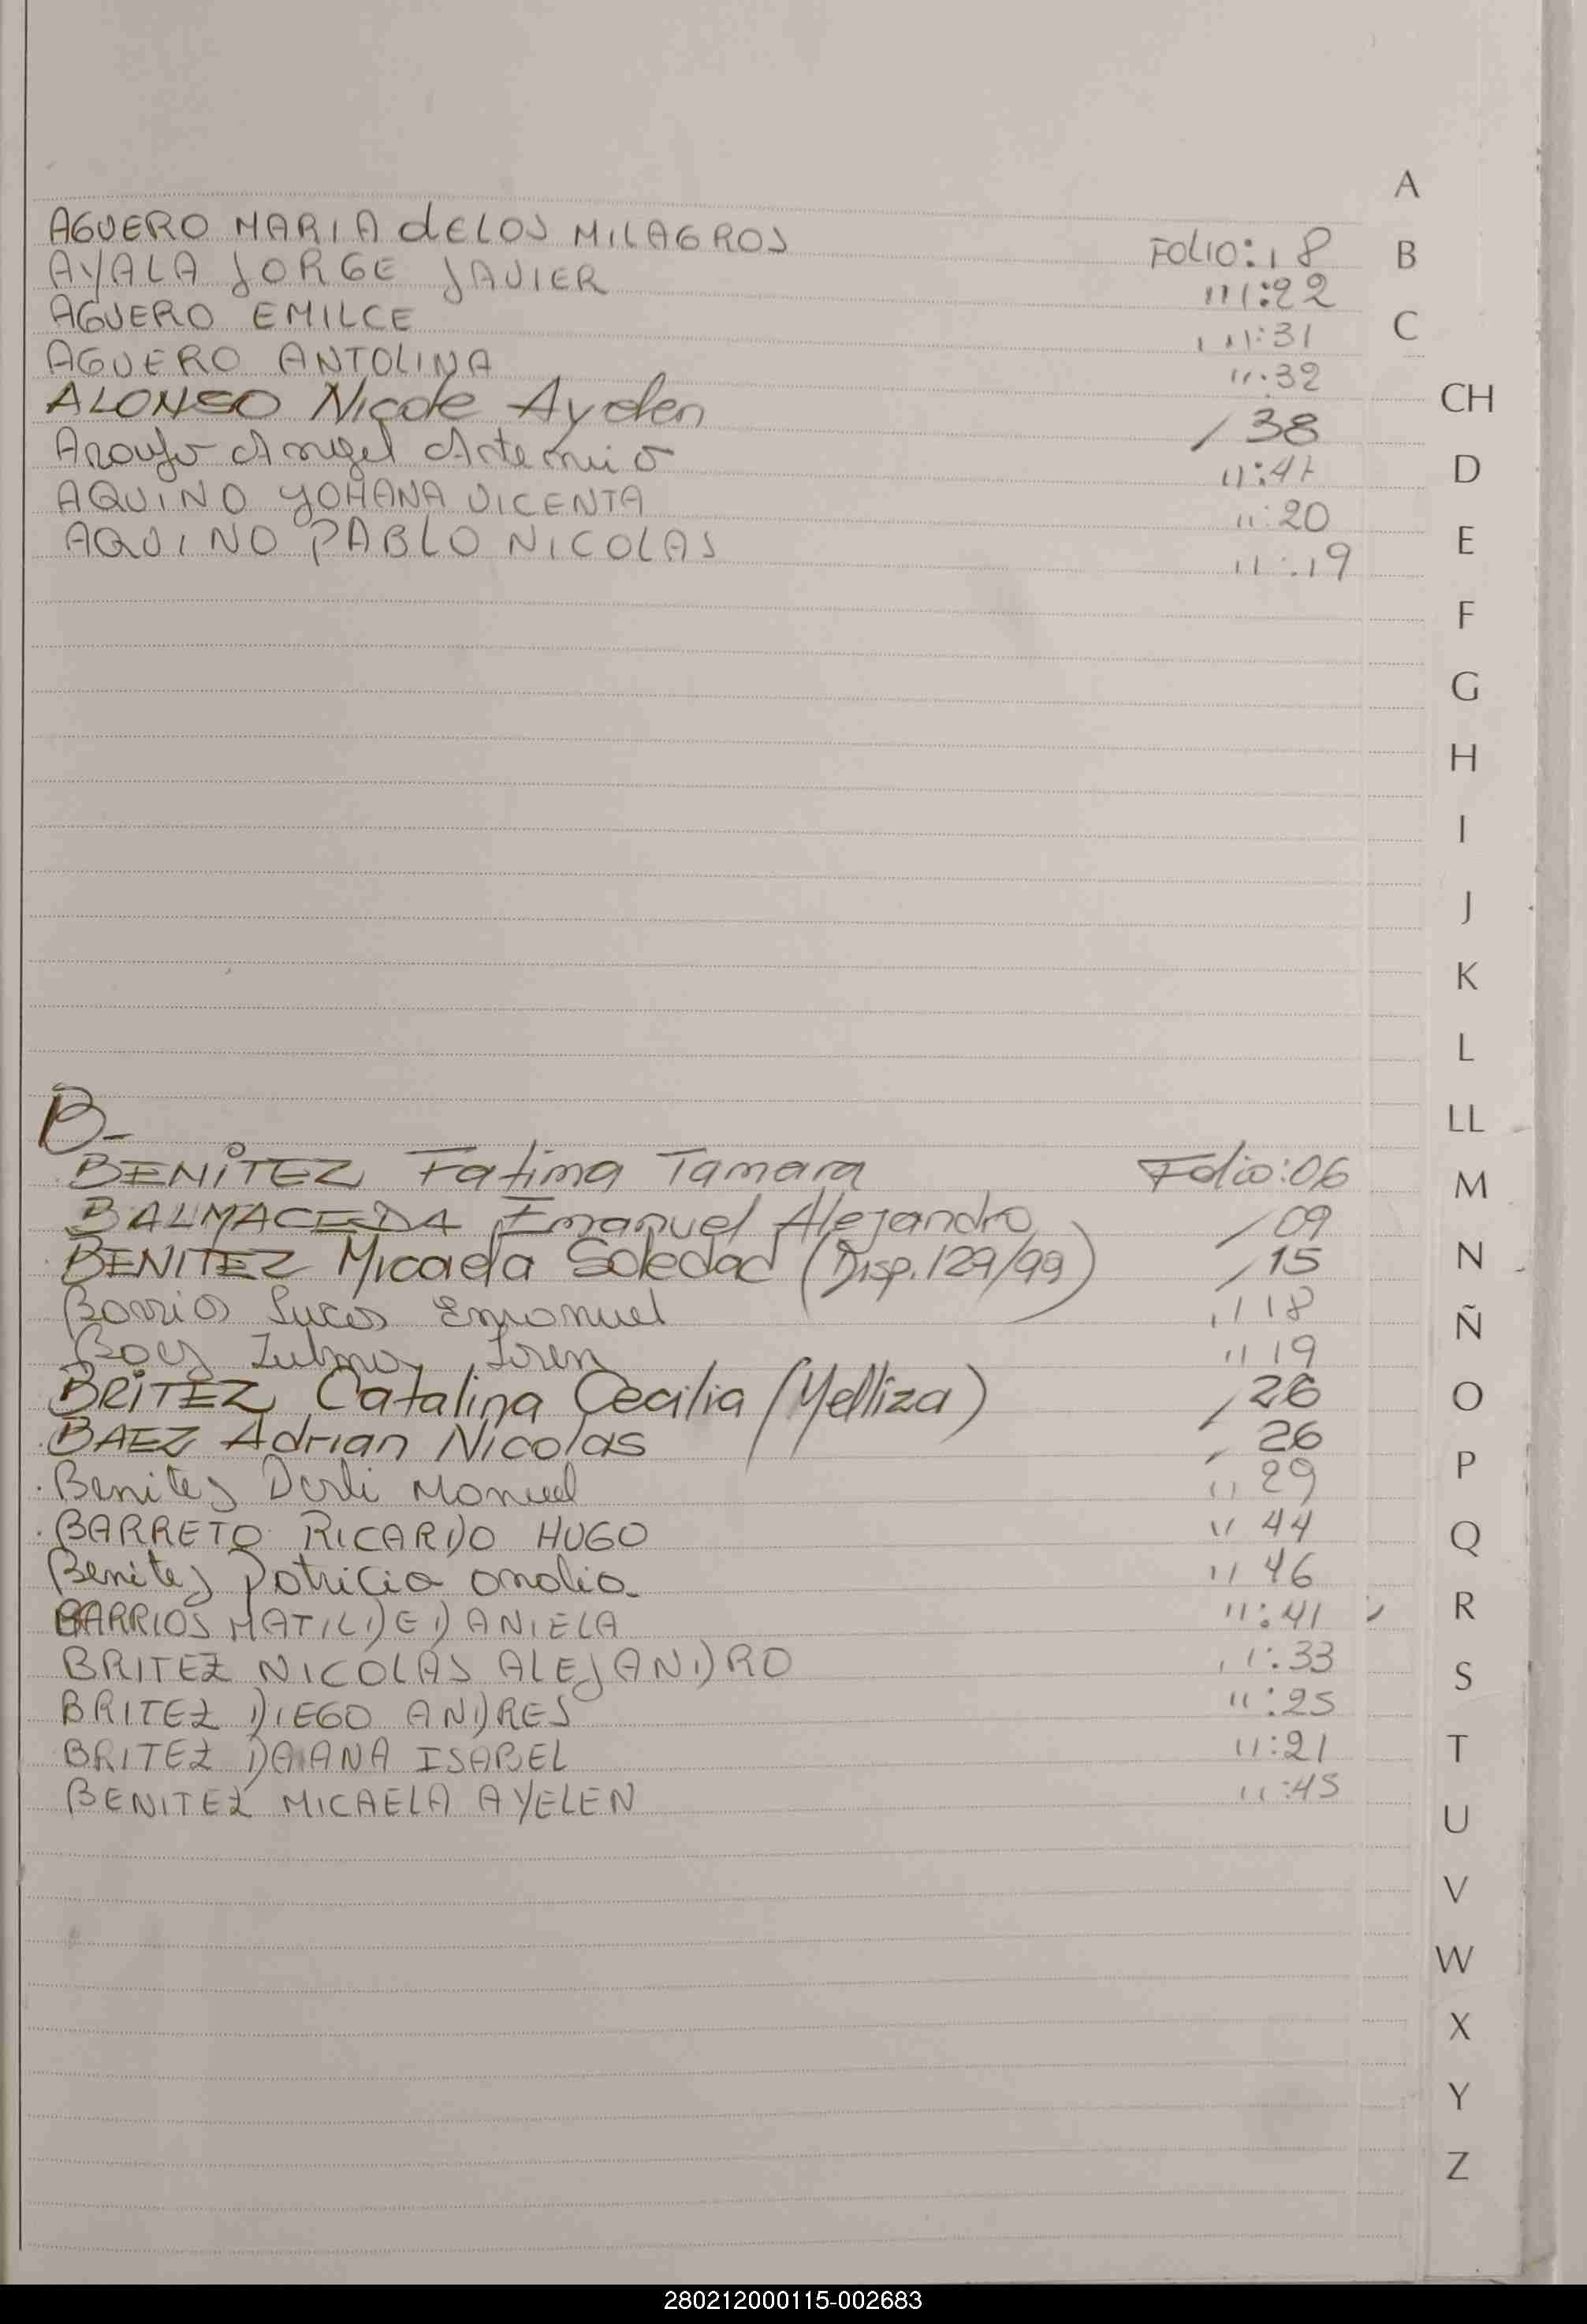 AGUERO MARIA dELOS MILAGROS FOLIO: 18
AYALA JORGE JAVIER 111:22
AGUERO EMILCE 1 11:31
AGUERO ANTOLINA 11.32
ALONSO Nicole Ayelen / 38
Araujo Angel Artemio 11:41
AQUINO YOHANA VICENTA 11:20
AQUINO PABLO NICOLAS 11:.19
B-
BENÍTEZ Fatima Tamara Folio:06
BALMACEDA Emanuel Alejandro / 09
BENITEZ Micaela Soledad (Disp. 129/99) / 15
Barrios Lucas Emanuel 11 18
Baez Zulma Iren 11 19
BRITEZ Catalina Cecilia (Melliza) / 26
BAEZ Adrian Nicolas / 26
Benitez Derli Manuel 11 29
BARRETO RICARDO HUGO 11 44
Benitez Patricia Analia 11 46
BARRIOS MATILDE DANIELA 11:41
BRITEZ NICOLAS ALEJANDRO 11:33
BRITEZ DIEGO ANDRES 11:25
BRITEZ DAIANA ISABEL 11:21
BENITEZ MICAELA AYELEN 11:45
A
B
C
CH
D
E
F
G
H
I
J
K
L
LL
M
N
Ñ
O
P
Q
R
S
T
U
V
W
X
Y
Z
280212000115-002683